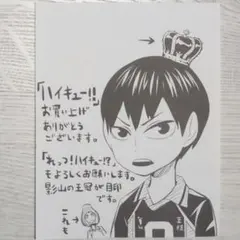 「ハイキュー!!」
お買い上げ
ありがとう
ございます。
「れっつ!ハイキュー!?」
もよろしくお願いします。
影山の王冠が目印
です。
これも